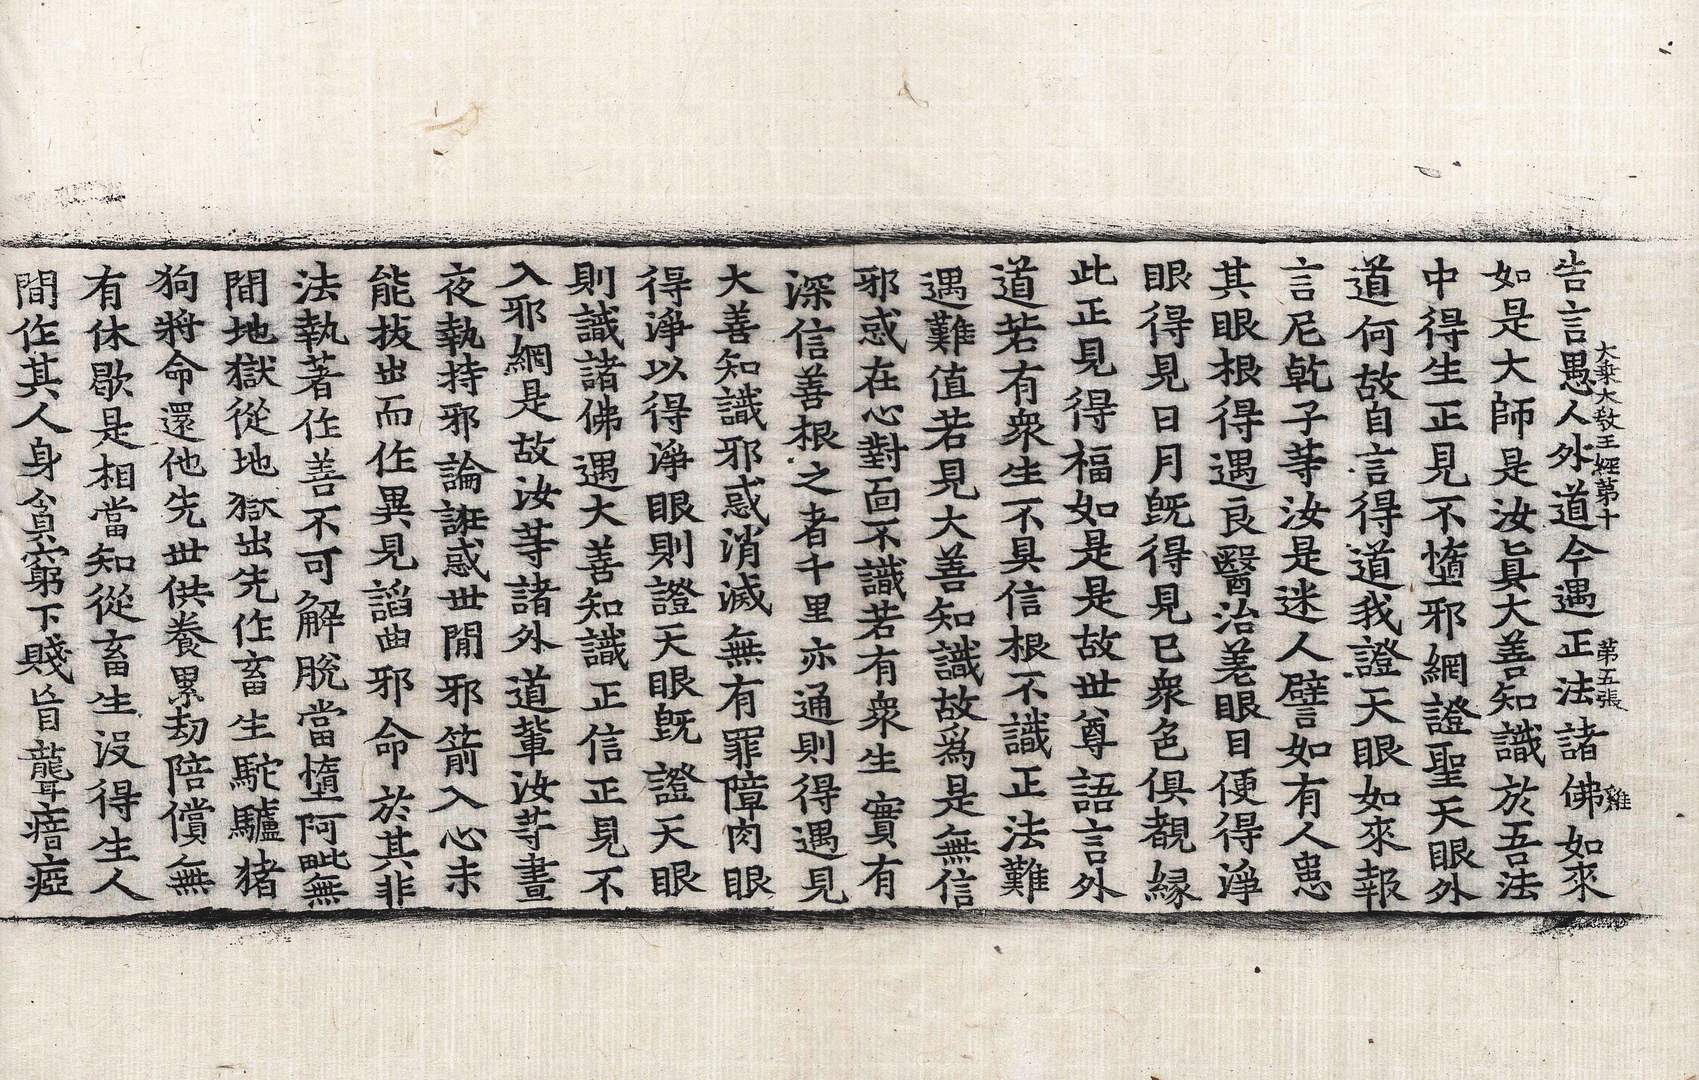 大乗大敎王經第十　第五張　雞
告言愚人外道今遇正法諸佛如來
如是大師是汝眞大善知識於吾法
中得生正見不墮邪網證聖天眼外
道何故自言得道我證天眼如來報
言尼乹子等汝是迷人譬如有人患
其眼根得遇良醫治差眼目便得淨
眼得見日月旣得見已衆色俱覩緣
此正見得福如是是故世尊語言外
道若有衆生不具信根不識正法難
遇難值若見大善知識故爲是無信
邪惑在心對面不識若有衆生實有
深信善根之者千里亦通則得遇見
大善知識邪惑消滅無有罪障肉眼
得淨以得淨眼則證天眼旣證天眼
則識諸佛遇大善知識正信正見不
入邪網是故汝等諸外道輩汝等晝
夜執持邪論誑惑世間邪箭入心未
能拔出而作異見諂曲邪命於其非
法執著作善不可解脫當墮阿毗無
間地獄從地獄出先作畜生駝驢猪
狗將命還他先世供養累劫陪償無
有休歇是相當知從畜生沒得生人
間作其人身貧窮下賤盲聾瘖瘂